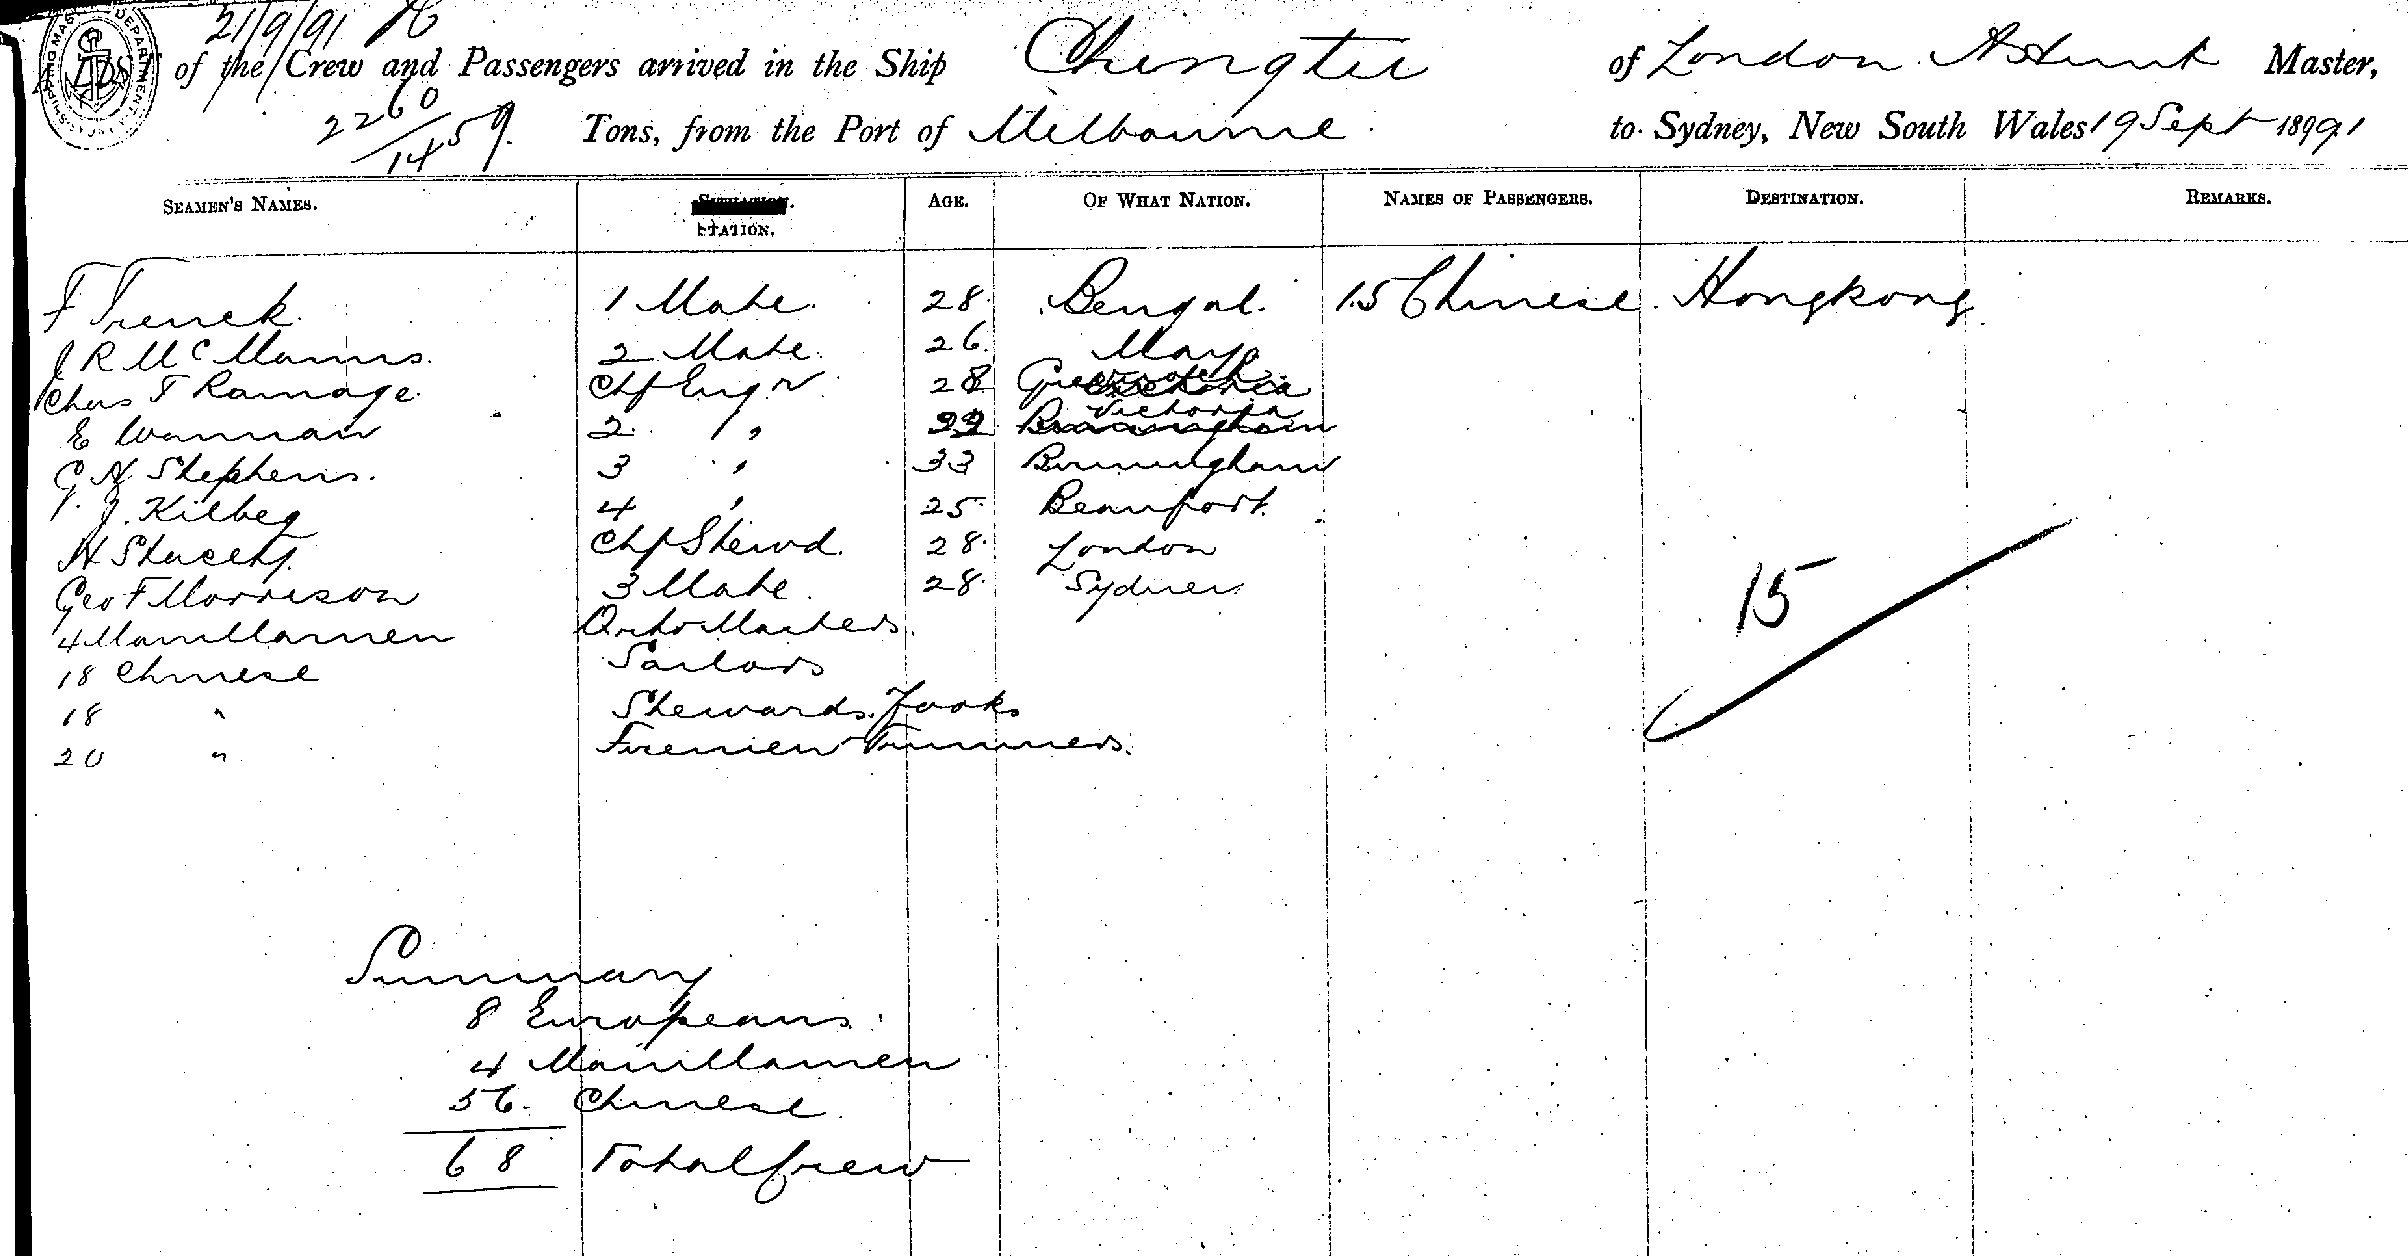 21/9/91
of the Crew and Passengers arrived in the Ship Chingtu of London A Hunt Master,
2260
1459. Tons, from the Port of Melbourne to Sydney, New South Wales 19 Sept 1891
SEAMEN'S NAMES. STATION. AGE. OF WHAT NATION. NAMES OF PASSENGERS. DESTINATION. REMARKS.
F Trenck. 1 Mate. 28. Bengal. 15 Chinese. Hongkong
J R McManus. 2 Mate. 26. Mayo
Chas T Ramage. Chf Engr 28 Greenock
E Wannan 2 " 22 Victoria
G H Stephens. 3 " 33 Birmingham
J. Kilbeg 4 " 25 Beaufort.
H Stacey. Chf Stewd. 28. London
Geo F Morrison 3 Mate. 28. Sydney
15
4 Manillamen Qrtr Masters.
18 Chinese Sailors
18 " Stewards. Cooks
20 " Firemen Trimmers.
Summary
8 Europeans.
4 Manillamen
56. Chinese.
68 Total Crew